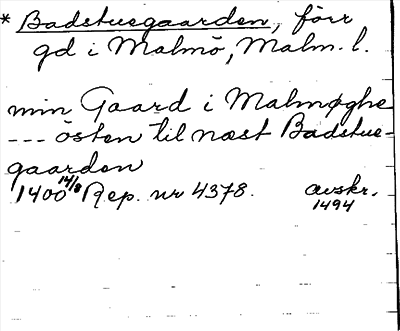 * Badstuegaarden, förr
gd i Malmö, Malm. l.
min Gaard i Malmøghe
--- østen til næst Badstue-
gaarden
1400 14/8 Rep. nr 4378. avskr.
1494